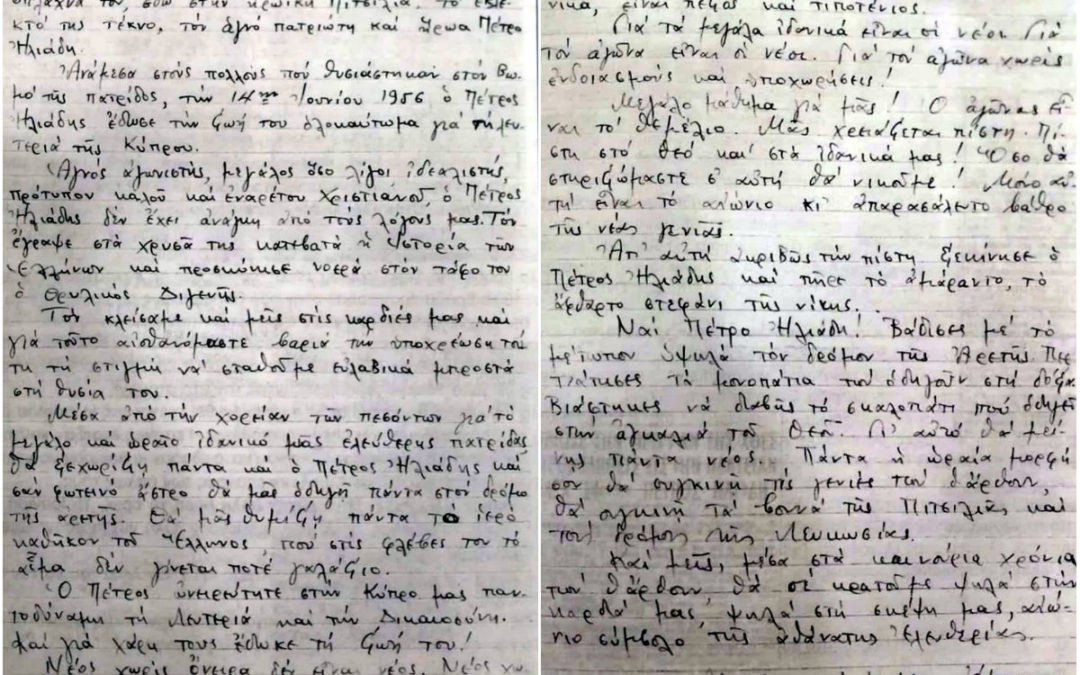 σπλάχνα του, εδώ στην ηρωική Πιτσιλιά, το εκλε-
κτό της τέκνο, τον ἁγνό πατριώτη καί ἥρωα Πέτρο
Ἠλιάδη.
Ἀνάμεσα στούς πολλούς πού θυσιάστηκαν στόν Βω-
μό τῆς πατρίδος, τήν 14ην Ἰουνίου 1956 ὁ Πέτρος
Ἠλιάδης ἔδωσε τήν ζωή του ὁλοκαύτωμα γιά τή λευ-
τεριά τῆς Κύπρου.
Ἁγνός ἀγωνιστής, μεγάλος ὅσο λίγοι ἰδεαλιστής,
πρότυπον καλοῦ καί ἐναρέτου Χριστιανοῦ, ὁ Πέτρος
Ἠλιάδης δέν ἔχει ἀνάγκη ἀπό τούς λόγους μας. Τόν
ἔγραψε στά χρυσᾶ της κατεβατά ἡ Ἱστορία τῶν
Ἑλλήνων καί προσκύνησε νοερά στόν τάφο του
ὁ θρυλικός Διγενῆς.
Τόν κλείσαμε καί μεῖς στίς καρδιές μας καί
γιά τοῦτο αἰσθανόμαστε βαριά τήν ὑποχρέωση τού-
τη τή στιγμή νά σταθοῦμε εὐλαβικά μπροστά
στή θυσία του.
Μέσα ἀπό τήν χορείαν τῶν πεσόντων γιά τό
μεγάλο καί ὡραῖο ἰδανικό μιᾶς ἐλεύθερης πατρίδας
θά ξεχωρίζη πάντα καί ὁ Πέτρος Ἠλιάδης καί
σάν φωτεινό ἄστρο θά μᾶς ὁδηγῆ πάντα στόν δρόμο
τῆς ἀρετῆς. Θά μᾶς θυμίζη πάντα τό ἱερό
καθῆκον τοῦ Ἕλληνος, πού στίς φλέβες του τό
αἷμα δέν γίνεται ποτέ γαλάζιο.
Ὁ Πέτρος ὠνειρεύτηκε στήν Κύπρο μας παν-
τοδύναμη τή Λευτεριά καί τήν Δικαιοσύνη.
Καί γιά χάρη τους ἔδωκε τή ζωή του!
Νέος χωρίς ὄνειρα δέν εἶναι νέος. Νέος χω-
νικά, εἶναι πεζός καί τιποτένιος.
Γιά τά μεγάλα ἰδανικά εἶναι οἱ νέοι. Γιά
τόν ἀγῶνα εἶναι οἱ νέοι. Γιά τόν ἀγῶνα χωρίς
ἐνδοιασμούς καί ὑποχωρήσεις!
Μεγάλο μάθημα γιά μᾶς! Ὁ ἀγῶνας εἶ-
ναι τό θεμέλιο. Μᾶς χρειάζεται πίστη. Πί-
στη στό Θεό καί στά ἰδανικά μας! Ὅσο θά
στηριζώμαστε σ' αὐτή θά νικοῦμε! Μόνο αὐ-
τή εἶναι τό αἰώνιο κι' ἀπαρασάλευτο βάθρο
τῆς νέας γενιᾶς.
Ἀπ' αὐτή ἀκριβῶς τήν πίστη ξεκίνησε ὁ
Πέτρος Ἠλιάδης καί πῆρε τό ἀμάραντο, τό
ἄφθαρτο στεφάνι τῆς νίκης.
Ναί Πέτρο Ἠλιάδη! Βάδισες μέ τό
μέτωπον ὑψηλά τόν δρόμον τῆς Ἀρετῆς. Περ-
πάτησες τά μονοπάτια πού ὁδηγοῦν στή δόξα.
Βιάστηκες νά διαβῆς τό σκαλοπάτι πού ὁδηγεῖ
στήν ἀγκαλιά τοῦ Θεοῦ. Γι' αὐτό θά μεί-
νης πάντα νέος. Πάντα ἡ ὡραία μορφή
σου θά συγκινῆ τίς γενιές πού θἄρθουν,
θά συγκινῆ τά βουνά τῆς Πιτσιλιᾶς καί
τούς δρόμους τῆς Λευκωσίας.
Καί μεῖς, μέσα στά καινούρια χρόνια
πού θἄρθουν θά σέ κρατοῦμε ψηλά στήν
καρδιά μας, ψηλά στή σκέψη μας, αἰώ-
νιο σύμβολο τῆς ἀθάνατης Ἐλευθερίας.